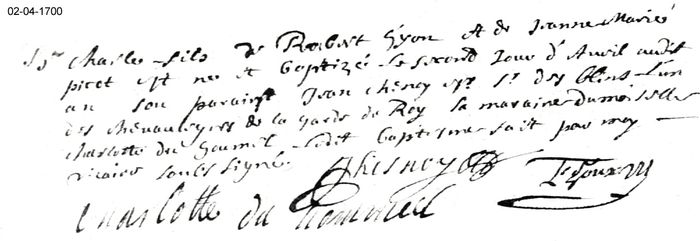 02-04-1700
Charles fils de Robert Guyon et de Jeanne Marie
picet est ne et baptizé le second jour d'Avril audit
an son parain Jean Chenoy Sr des Blins l'un
des chevaulegers de la garde du Roy la maraine dumoiselle
Charlotte du Gommel ledit baptesme fait par moy
vicaire soubsigné
Chesnoye
Charlotte du Hommeel